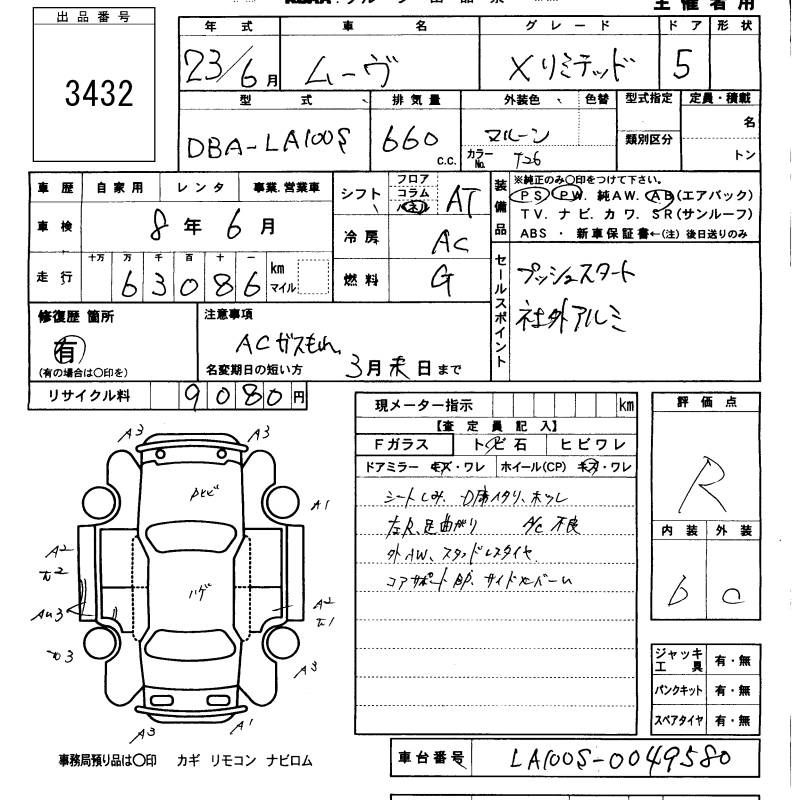 出品番号
3432
主催者用
年式 車名 グレード ドア 形状
23/6月 ムーヴ Xリミテッド 5
型式 排気量 外装色 色替 型式指定 定員・積載
DBA-LA100S 660 c.c. マルーン 類別区分 名
カラーNo. T26 トン
車歴 自家用 レンタ 事業.営業車
車検 8年6月
走行 十万 万 千 百 十 一 km マイル
63086
シフト フロア コラム パネル AT
冷房 AC
燃料 G
装備品 ※純正のみ〇印をつけて下さい。
PS PW. 純AW. AB(エアバック)
TV. ナビ. カワ. SR(サンルーフ)
ABS ・ 新車保証書←(注) 後日送りのみ
セールスポイント
プッシュスタート
社外アルミ
修復歴 箇所
有
(有の場合は〇印を)
注意事項
ACガスもれ
名変期日の短い方 3月末日まで
リサイクル料 9080円
現メーター指示 km
【査定員記入】
Fガラス トビ石 ヒビワレ
ドアミラー キズ・ワレ ホイール(CP) キズ・ワレ
シートしみ、D席ヘタリ、ホツレ
A/C 不良
外AW、スタッドレスタイヤ
コアサポート
評価点
R
内装 外装
b c
ジャッキ工具 有・無
パンクキット 有・無
スペアタイヤ 有・無
A3 A3
A1
A2
A2
A3
A3 A1
ハゲ
事務局預り品は〇印 カギ リモコン ナビロム
車台番号 LA100S-0049580